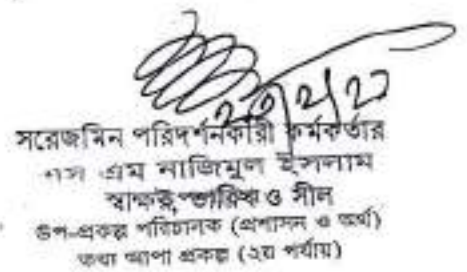 সরেজমিন পরিদর্শনকারী কর্মকর্তার
এস এম নাজিমুল ইসলাম
স্বাক্ষর, তারিখ ও সীল
উপ-প্রকল্প পরিচালক (প্রশাসন ও অর্থ)
তথ্য আপা প্রকল্প (২য় পর্যায়)